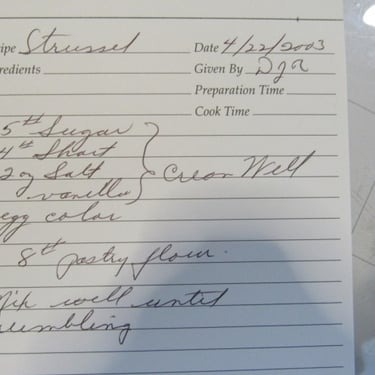 ipe Strussel Date 4/22/2003
redients Given By DJR
Preparation Time
Cook Time
5# Sugar
4# Short
2 oz Salt Cream Well
vanilla
egg color
8# pastry flour.
Mix well until
rumbling